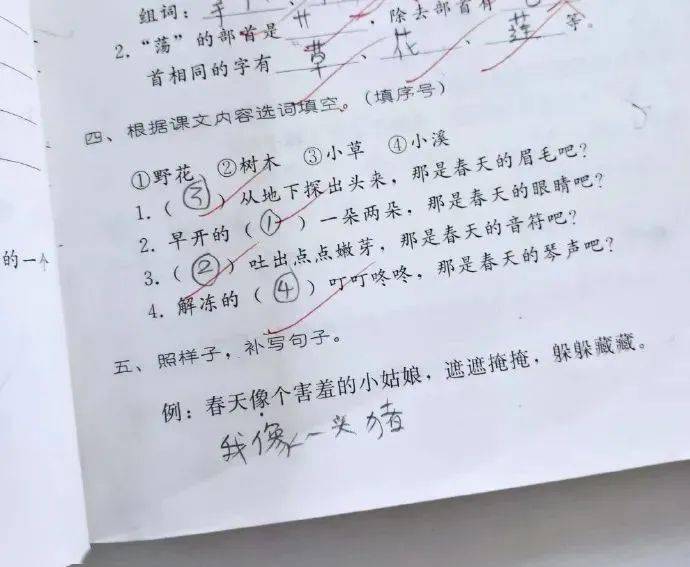 组词：
2.“荡”的部首是 艹 ，除去部首有
首相同的字有 草 、 花 、 莲 等。
四、根据课文内容选词填空。（填序号）
①野花 ②树木 ③小草 ④小溪
1.（ ③ ）从地下探出头来，那是春天的眉毛吧？
2. 早开的（ ① ）一朵两朵，那是春天的眼睛吧？
3.（ ② ）吐出点点嫩芽，那是春天的音符吧？
的一个
4. 解冻的（ ④ ）叮叮咚咚，那是春天的琴声吧？
五、照样子，补写句子。
例：春天像个害羞的小姑娘，遮遮掩掩，躲躲藏藏。
我像一头猪